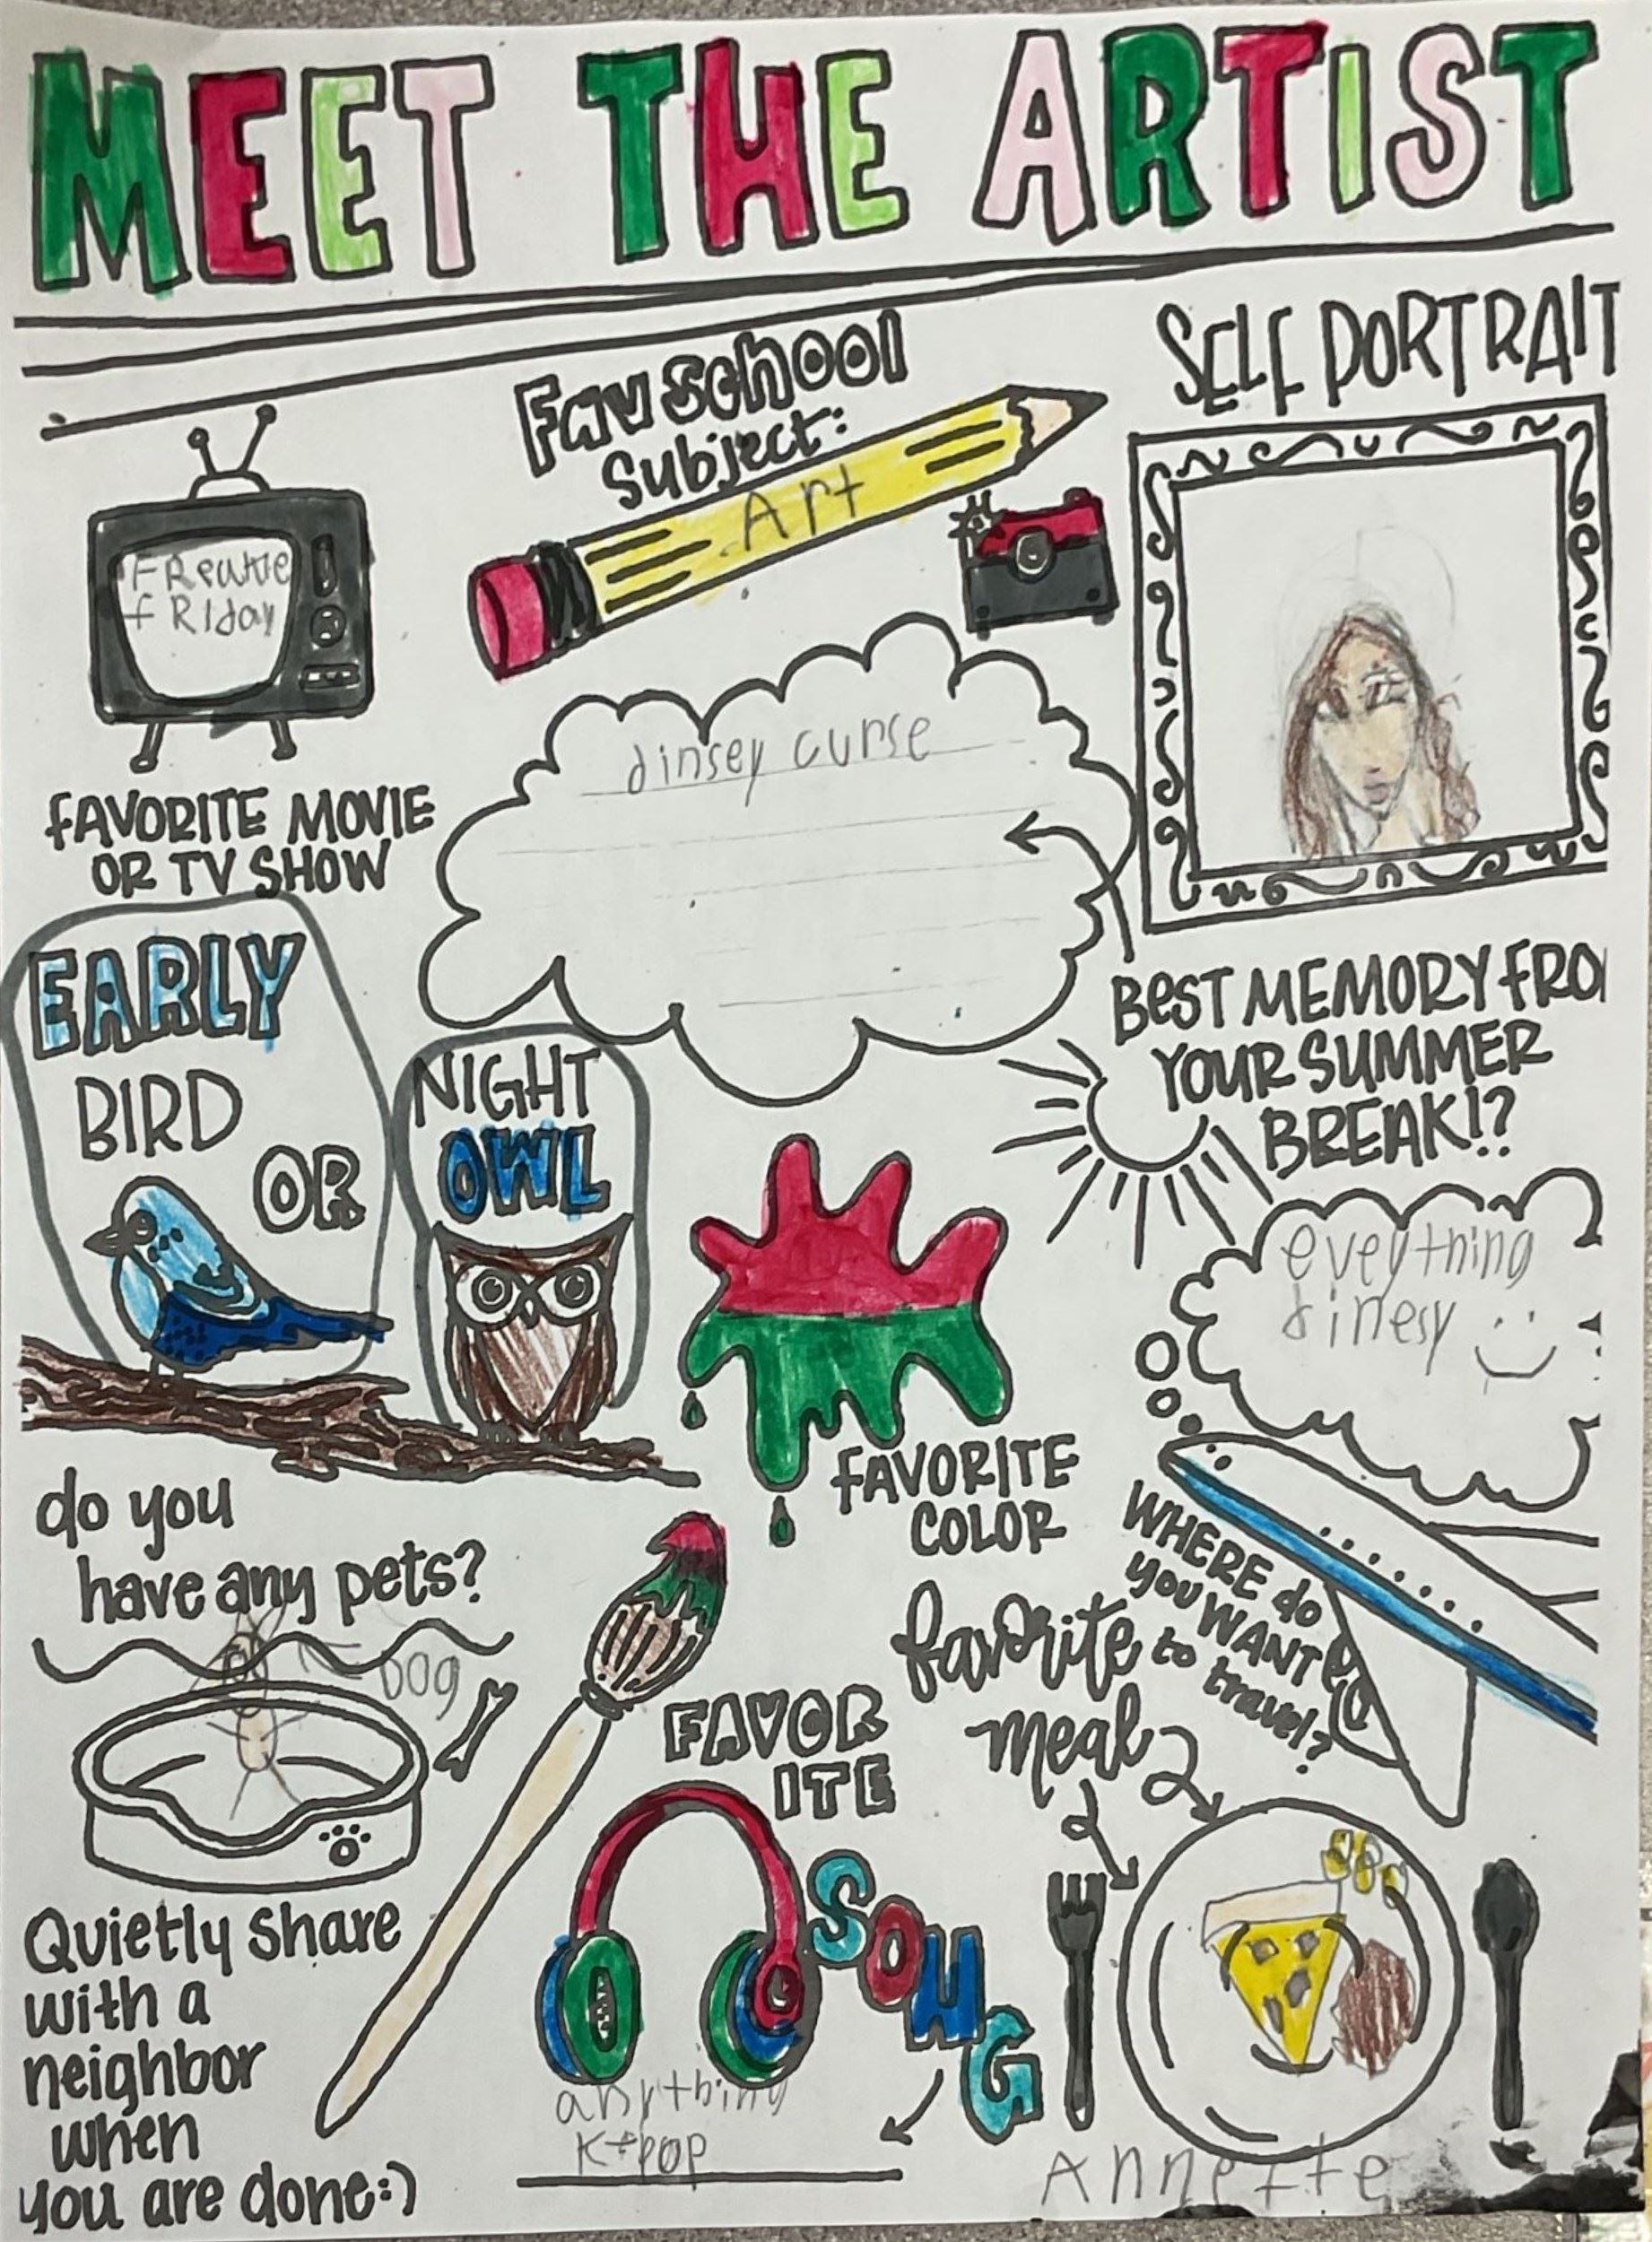 MEET THE ARTIST
Fav school
subject:
Art
SELF PORTRAIT
FReakie
fRIday
FAVORITE MOVIE
OR TV SHOW
dinsey curse
BEST MEMORY FRO
YOUR SUMMER
BREAK!?
EARLY
BIRD
OR
NIGHT
OWL
FAVORITE
COLOR
eveything
dinesy
WHERE do
you WANT
to travel?
do you
have any pets?
Dog
favorite
meal
FAVOR
ITE
SONG
anything
K-pop
Quietly share
with a
neighbor
when
you are done:)
Annette